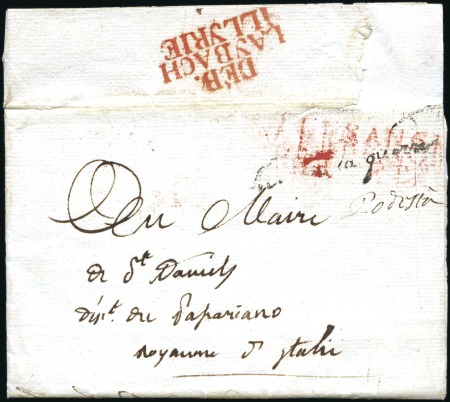 DÉB.
LAYBACH
ILLYRIE
la guerre
Au Maire
Podestà
de St Daniels
dist. du Papariano
Royaume d'Italie